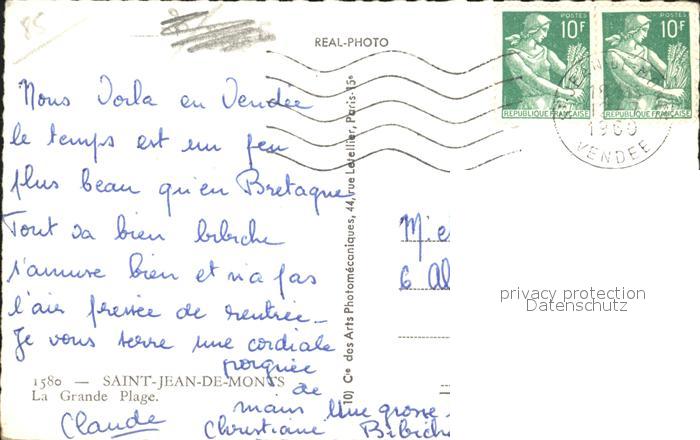 85
REAL-PHOTO
POSTES
10F
RÉPUBLIQUE FRANÇAISE
POSTES
10F
RÉPUBLIQUE FRANÇAISE
1960
VENDEE
Nous Voila en Vendee
le temps est un peu
plus beau qu'en Bretagne
Tout va bien bibiche
s'amuse bien et n'a pas
l'air pressée de rentrée_
Je vous serre une cordiale
poignée
de
main Une grosse
Claude Christiane Bibich
1580 — SAINT-JEAN-DE-MONTS
La Grande Plage.
10) Cie des Arts Photomécaniques, 44, rue Letellier, Paris-15e
Mie
6 Al
privacy protection
Datenschutz